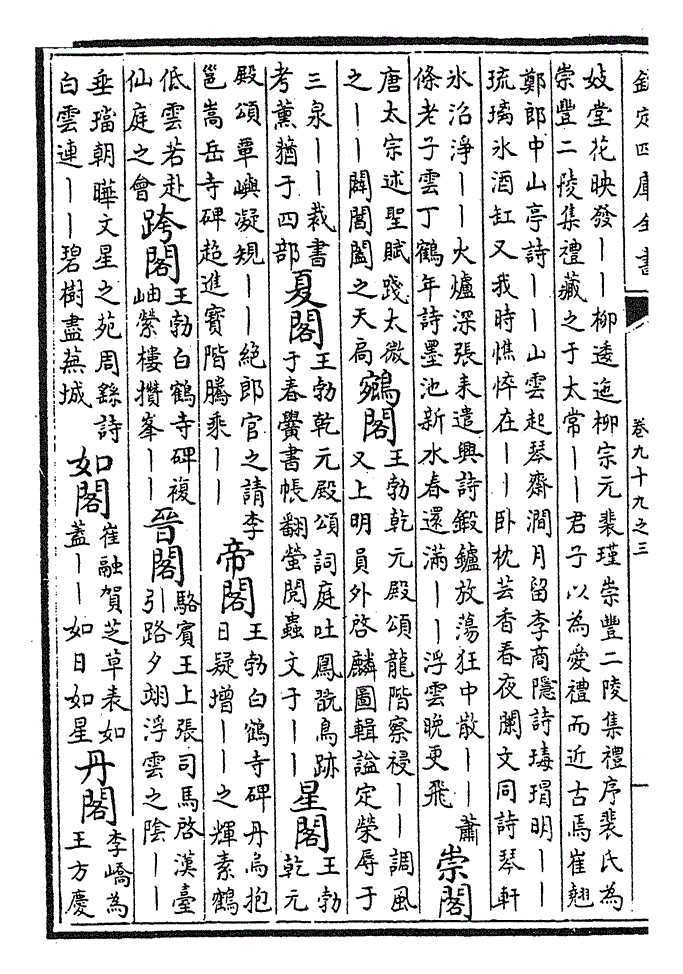 欽定四庫全書
卷九十九之三
妓堂花映發——柳逶迤柳宗元裴瑾崇豐二陵集禮序裴氏為
崇豐二陵集禮藏之于太常——君子以為愛禮而近古焉崔翹
鄭郎中山亭詩——山雲起琴齋澗月留李商隱詩瑇瑁明——
琉璃氷酒缸又我時憔悴在——卧枕芸香春夜闌文同詩琴軒
氷沿淨——火爐深張耒遣興詩鍛鑪放蕩狂中散——蕭
條老子雲丁鶴年詩墨池新水春還滿——浮雲晚更飛
崇閣
唐太宗述聖賦踐太微
之——闢閶闔之天扃
鵷閣
王勃乾元殿頌龍階察祲——調風
又上明員外啓麟圖輯諡定榮辱于
三泉——裁書
考薰蕕于四部
夏閣
王勃乾元殿頌詞庭吐鳳翫鳥跡
于春黌書帳翻螢閱蟲文于——
星閣
王勃
乾元
殿頌覃嶼凝規——絕郎官之請李
邕嵩岳寺碑趍進寳階騰乘——
帝閣
王勃白鶴寺碑丹烏抱
日疑增——之輝素鶴
低雲若赴
仙庭之會
跨閣
王勃白鶴寺碑複
岫縈樓攢峯——
晉閣
駱賓王上張司馬啓漢臺
引路夕翊浮雲之陰——
垂璫朝曄文星之苑周繇詩
白雲連——碧樹盡蕪城
如閣
崔融賀芝草表如
蓋——如日如星
丹閣
李嶠為
王方慶